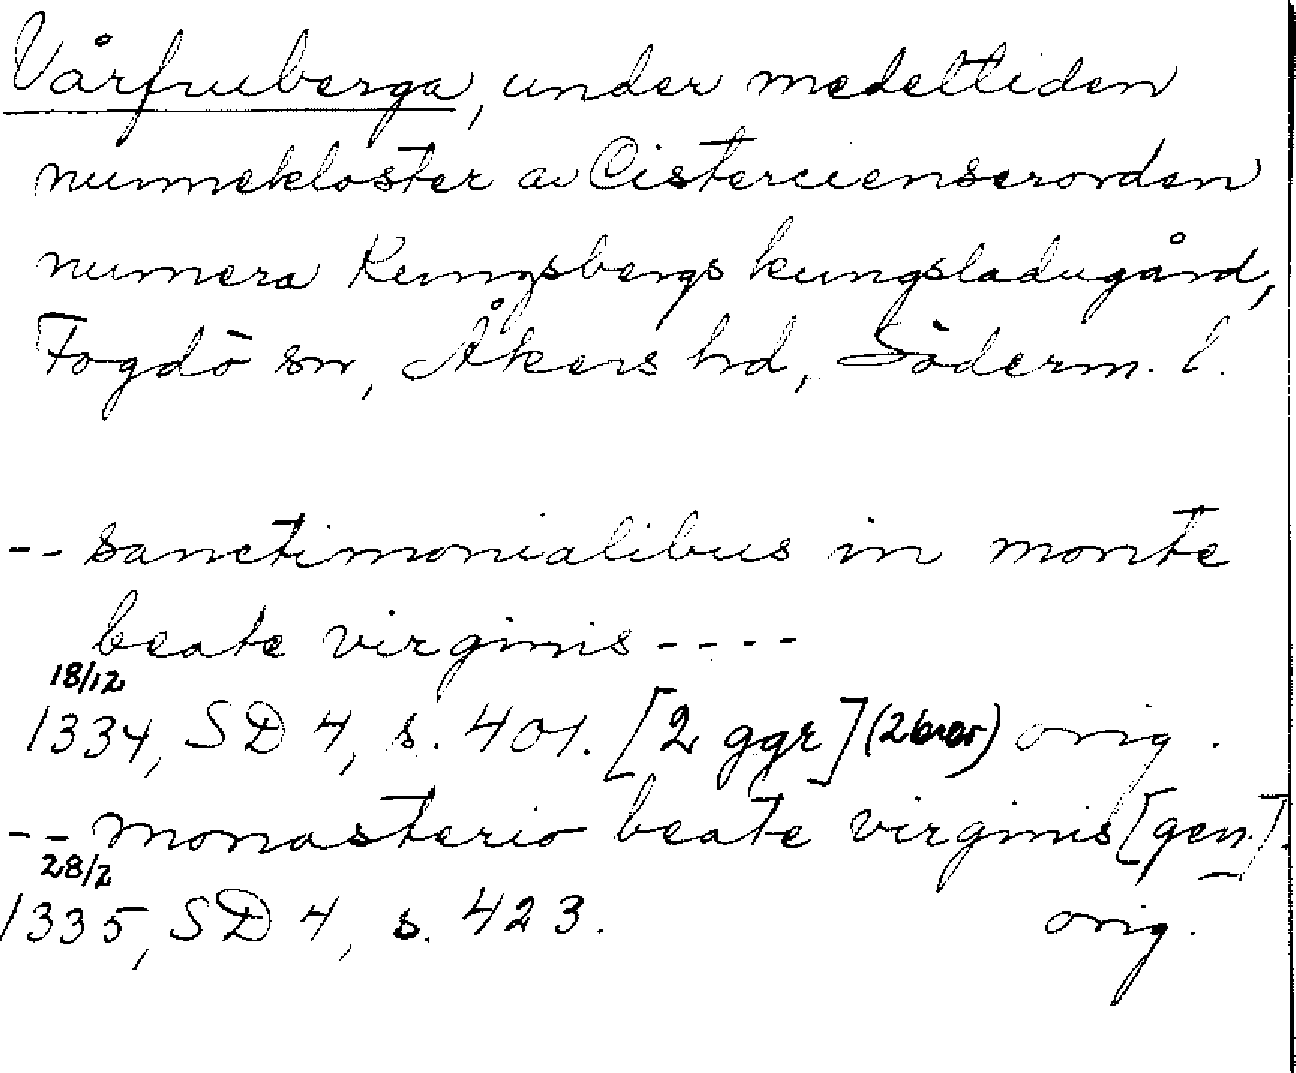 Vårfruberga, under medeltiden
nunnekloster av Cistercienserorden
numera Kungsbergs kungsladugård,
Fogdö sn, Åkers hd, Söderm. l.
-- sanctimonialibus in monte
beate virginis ----
18/12
1334, SD 4, s. 401. [2 ggr] (2 brev) orig.
-- monasterio beate virginis [gen.].
28/2
1335, SD 4, s. 423. orig.